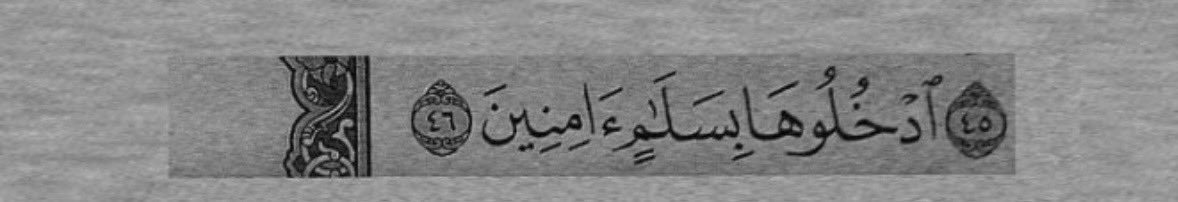 ٤٥ ٱدْخُلُوهَا بِسَلَٰمٍ ءَامِنِينَ ٤٦